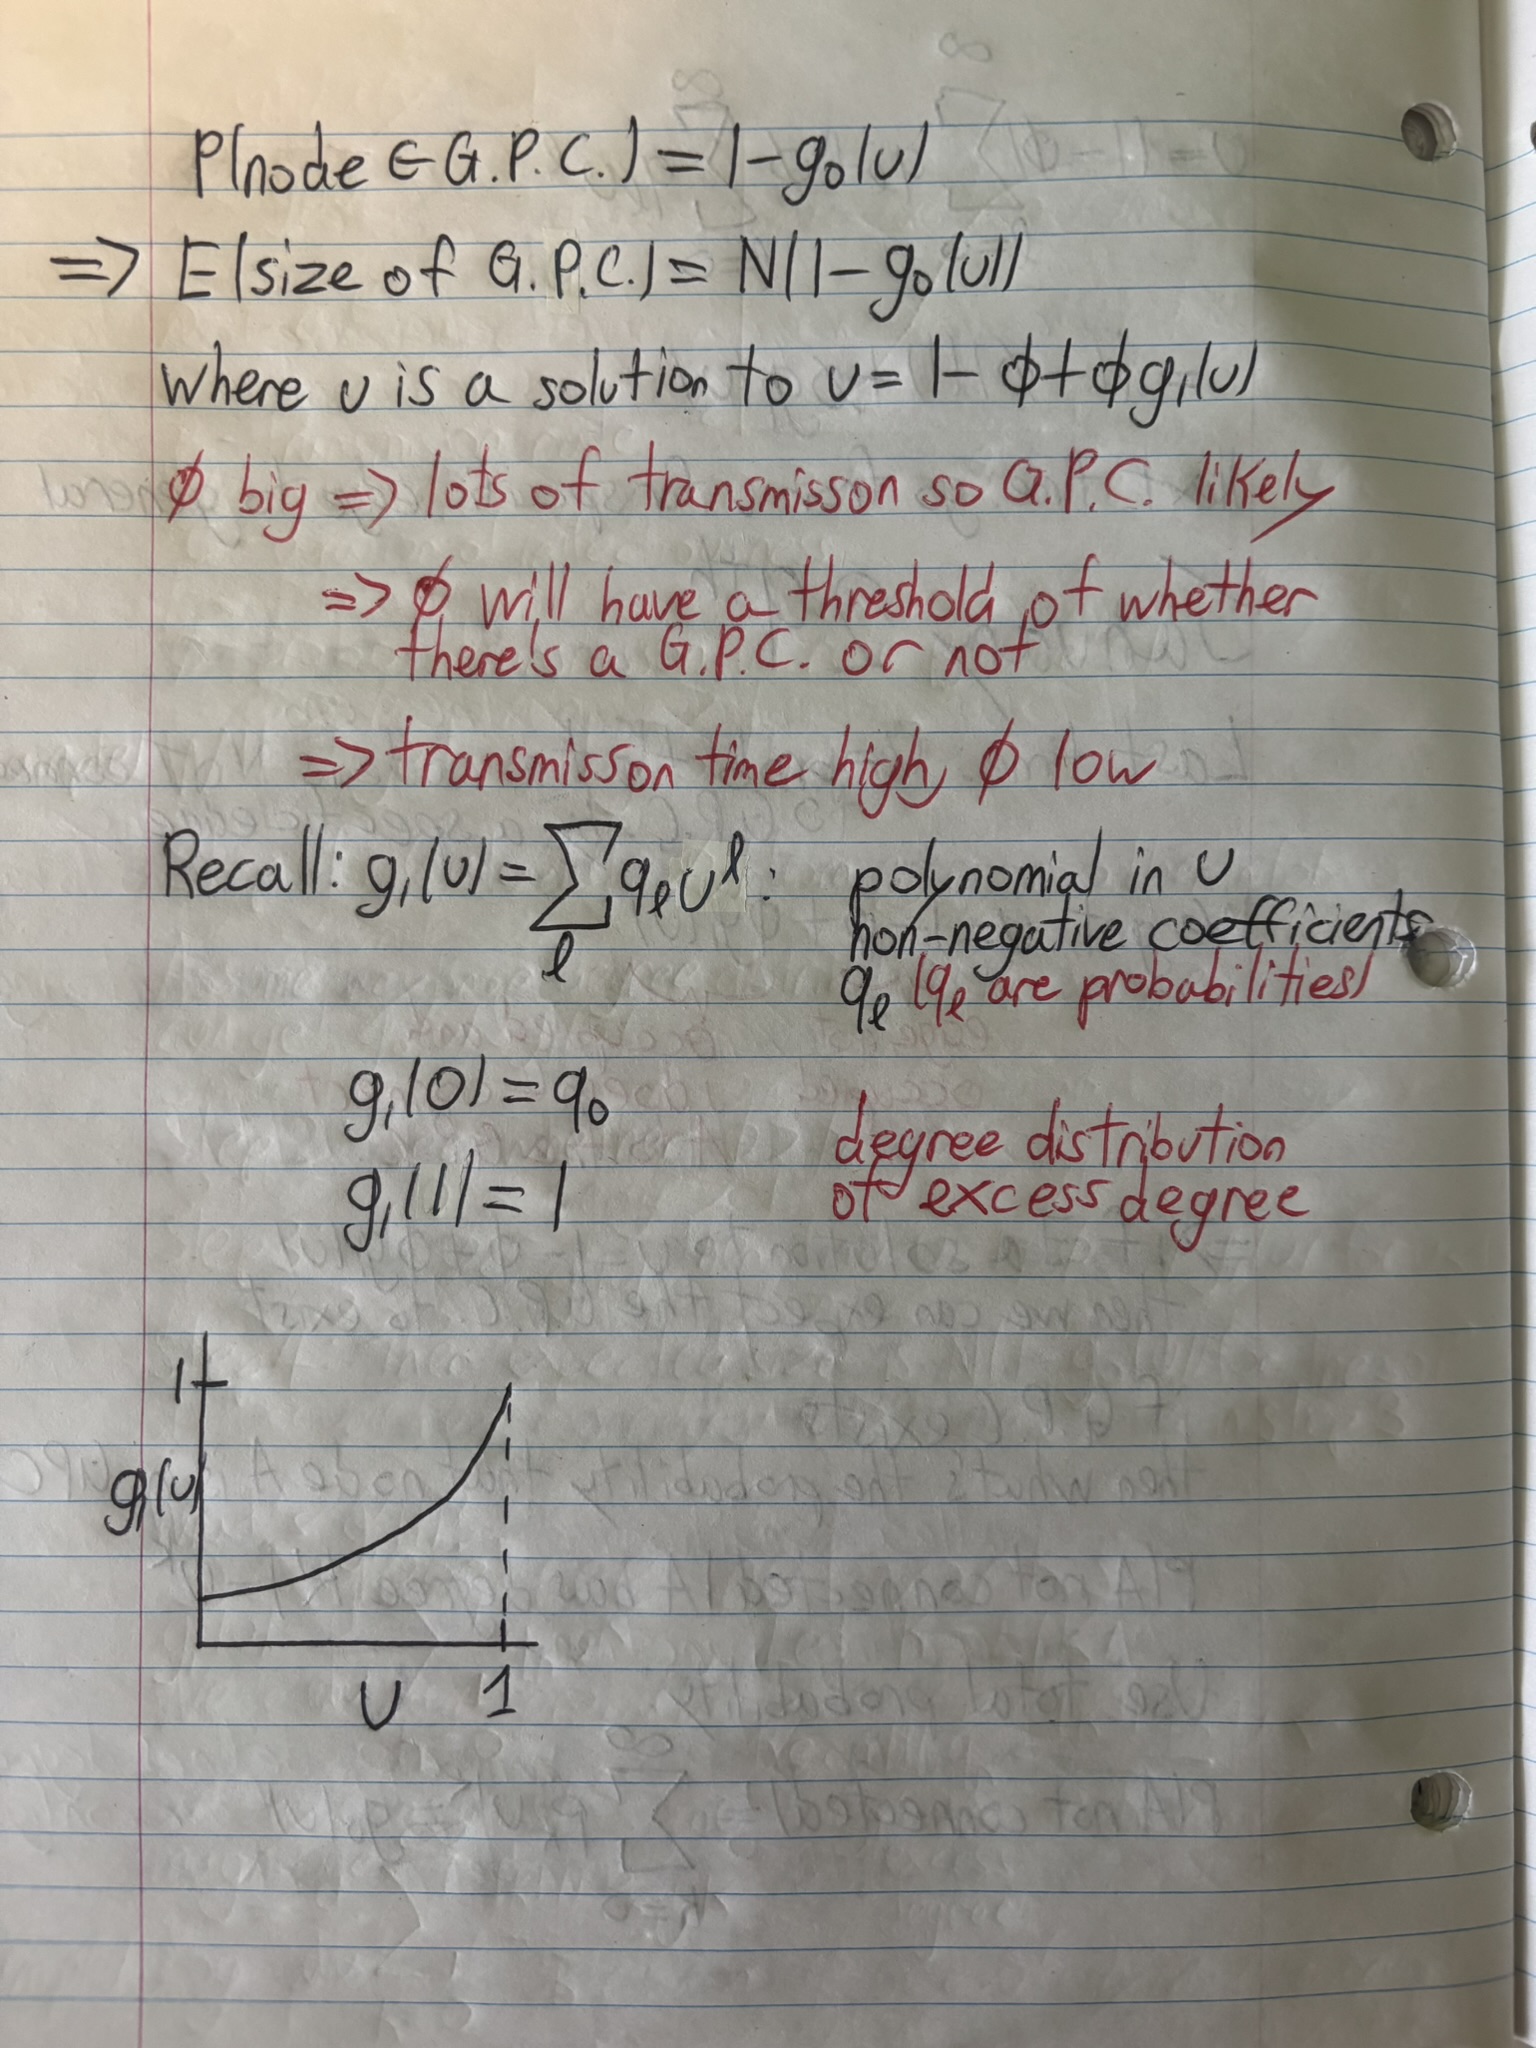 P(node ∈ G.P.C.) = 1 - g₀(u)
=> E(size of G.P.C.) = N(1 - g₀(u))
where u is a solution to u = 1 - ϕ + ϕg₁(u)
ϕ big => lots of transmisson so G.P.C. likely
=> ϕ will have a threshold of whether
there's a G.P.C. or not
=> transmisson time high, ϕ low
Recall: g₁(u) = ∑ qₗuˡ : polynomial in u
ℓ
non-negative coefficients
qₗ (qₗ are probabilities)
g₁(0) = q₀
g₁(1) = 1
degree distribution
of excess degree
1
g₁(u)
u 1